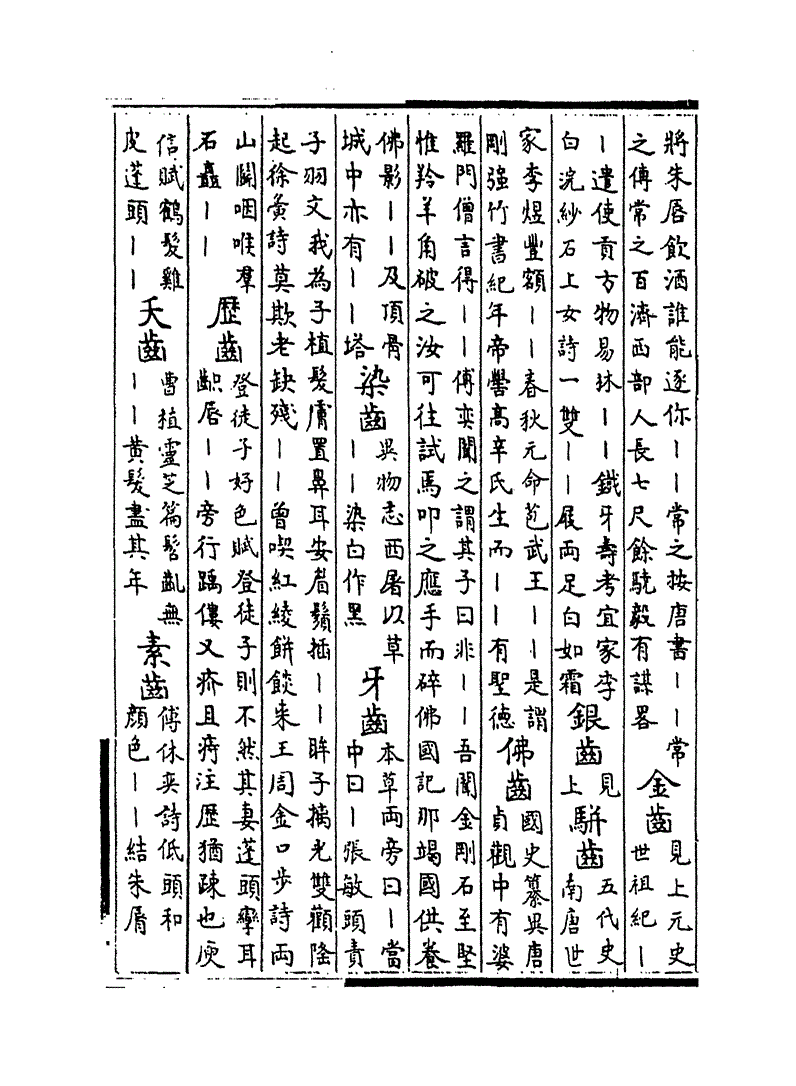 將朱唇飲酒誰能逐你丨丨常之按唐書丨丨常
之傳常之百濟西部人長七尺餘驍毅有謀畧
金齒
見上元史
世祖紀丨
丨遣使貢方物易林丨丨鐵牙壽考宜家李
白浣紗石上女詩一雙丨丨屐兩足白如霜
銀齒
見
上
駢齒
五代史
南唐世
家李煜豐額丨丨春秋元命苞武王丨丨是謂
剛強竹書紀年帝嚳高辛氏生而丨丨有聖德
佛齒
國史纂異唐
貞觀中有婆
羅門僧言得丨丨傅奕聞之謂其子曰非丨丨吾聞金剛石至堅
惟羚羊角破之汝可往試焉叩之應手而碎佛國記那竭國供養
佛影丨丨及頂骨
城中亦有丨丨塔
染齒
異物志西屠以草
丨丨染白作黑
牙齒
本草兩旁曰丨當
中曰丨張敏頭責
子羽文我為子植髮膚置鼻耳安眉鬚插丨丨眸子摛光雙顴隆
起徐夤詩莫欺老缺殘丨丨曾喫紅綾餅餤來王周金口步詩兩
山鬭咽喉羣
石矗丨丨
歴齒
登徒子好色賦登徒子則不然其妻蓬頭攣耳
齞唇丨丨旁行踽僂又疥且痔注歴猶疎也庾
信賦鶴髮雞
皮蓬頭丨丨
夭齒
曹植靈芝篇髫齓無
丨丨黄髮盡其年
素齒
傅休奕詩低頭和
顔色丨丨結朱脣